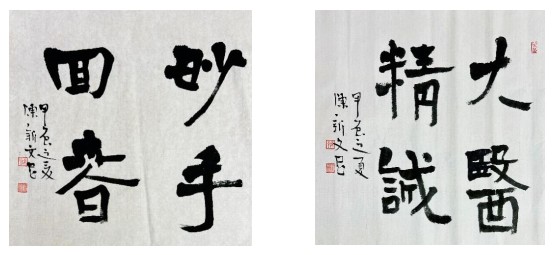 妙手
回春
甲辰之夏
陈新文书
大醫
精誠
甲辰之夏
陈新文书